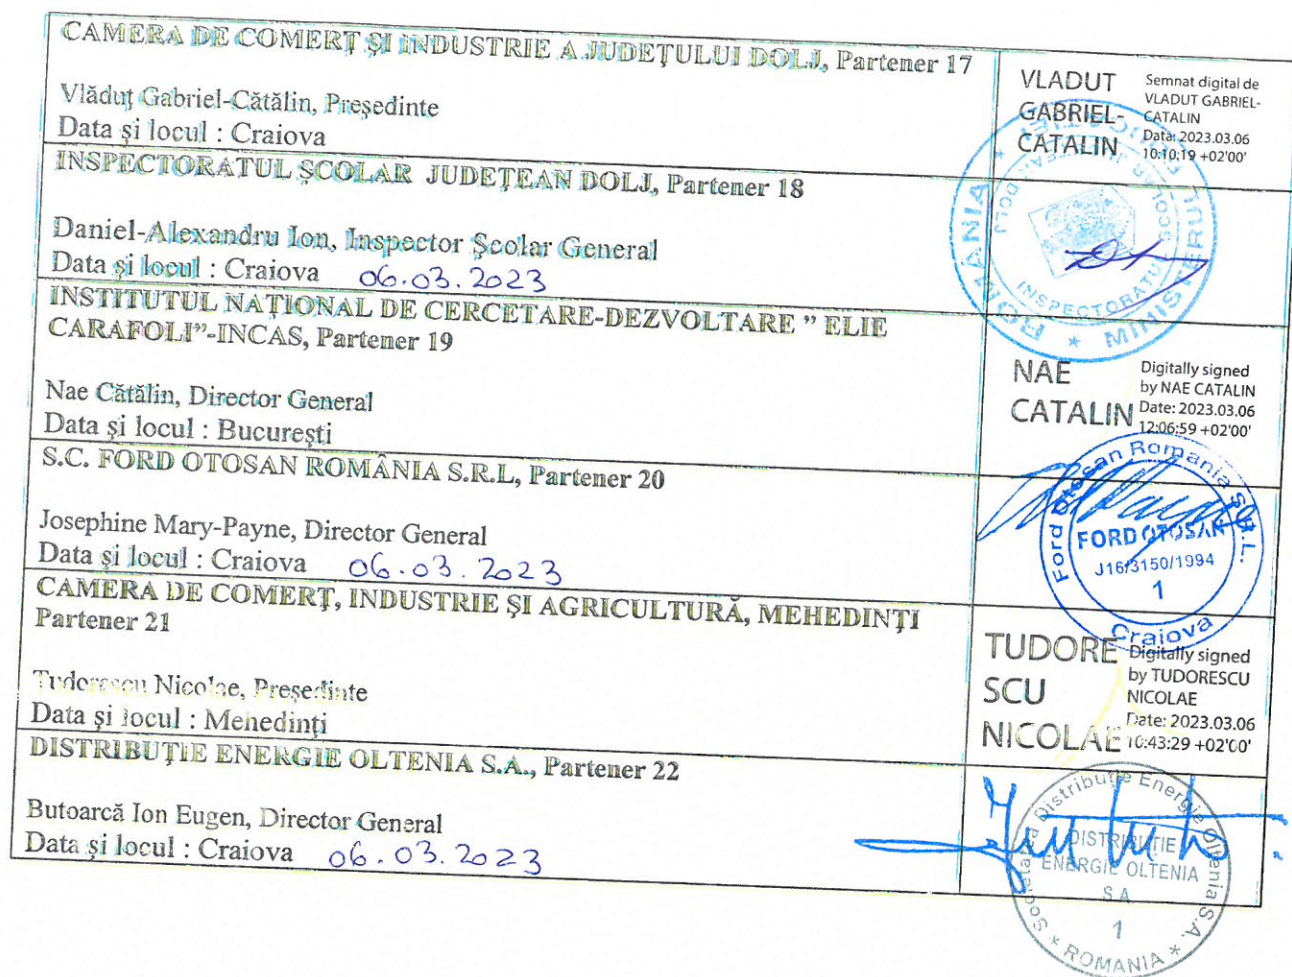 CAMERA DE COMERȚ ȘI INDUSTRIE A JUDEȚULUI DOLJ, Partener 17
Vlăduț Gabriel-Cătălin, Președinte
Data și locul : Craiova
VLADUT
GABRIEL-
CATALIN
Semnat digital de
VLADUT GABRIEL-
CATALIN
Data: 2023.03.06
10:10:19 +02'00'
INSPECTORATUL ȘCOLAR JUDEȚEAN DOLJ, Partener 18
Daniel-Alexandru Ion, Inspector Școlar General
Data și locul : Craiova 06.03.2023
ROMÂNIA * MINISTERUL
INSPECTORATUL ȘCOLAR DOLJ
INSTITUTUL NAȚIONAL DE CERCETARE-DEZVOLTARE ” ELIE
CARAFOLI”-INCAS, Partener 19
Nae Cătălin, Director General
Data și locul : București
NAE
CATALIN
Digitally signed
by NAE CATALIN
Date: 2023.03.06
12:06:59 +02'00'
S.C. FORD OTOSAN ROMÂNIA S.R.L, Partener 20
Josephine Mary-Payne, Director General
Data și locul : Craiova 06.03.2023
Ford Otosan Romania S.R.L.
FORD OTOSAN
J16/3150/1994
1
Craiova
CAMERA DE COMERȚ, INDUSTRIE ȘI AGRICULTURĂ, MEHEDINȚI
Partener 21
Tudorescu Nicolae, Președinte
Data și locul : Mehedinți
TUDORE
SCU
NICOLAE
Digitally signed
by TUDORESCU
NICOLAE
Date: 2023.03.06
10:43:29 +02'00'
DISTRIBUȚIE ENERGIE OLTENIA S.A., Partener 22
Butoarcă Ion Eugen, Director General
Data și locul : Craiova 06.03.2023
Societatea Distribuție Energie Oltenia S.A.
DISTRIBUȚIE
ENERGIE OLTENIA
S.A.
1
* ROMANIA *